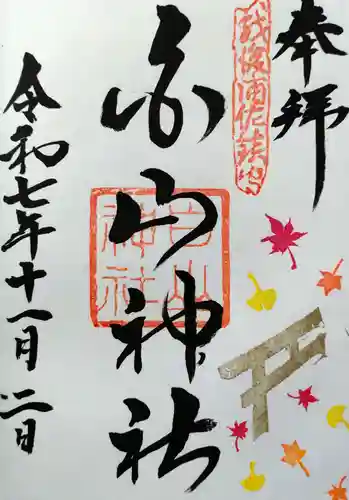 奉拝
越後浦佐鎮守
白山神社
白山神社
令和七年十一月二日